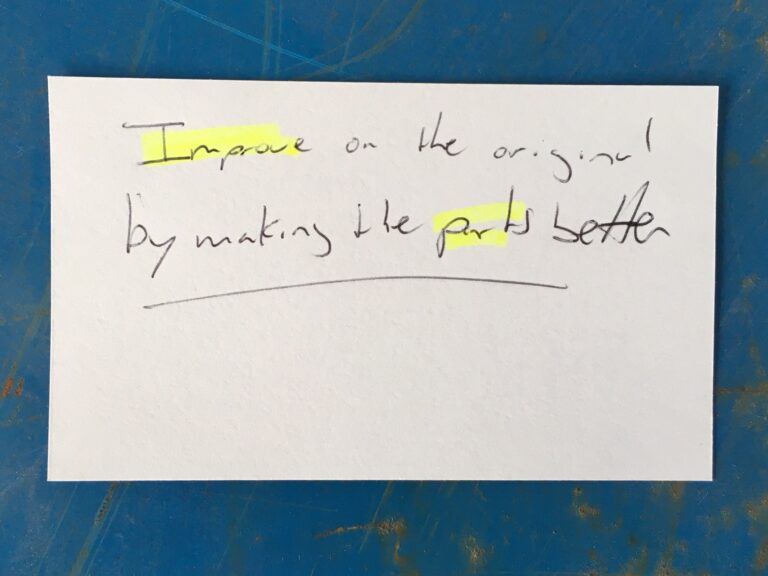 Improve on the original
by making the parts better